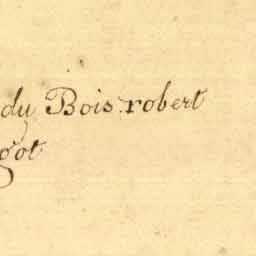 du Bois robert
got